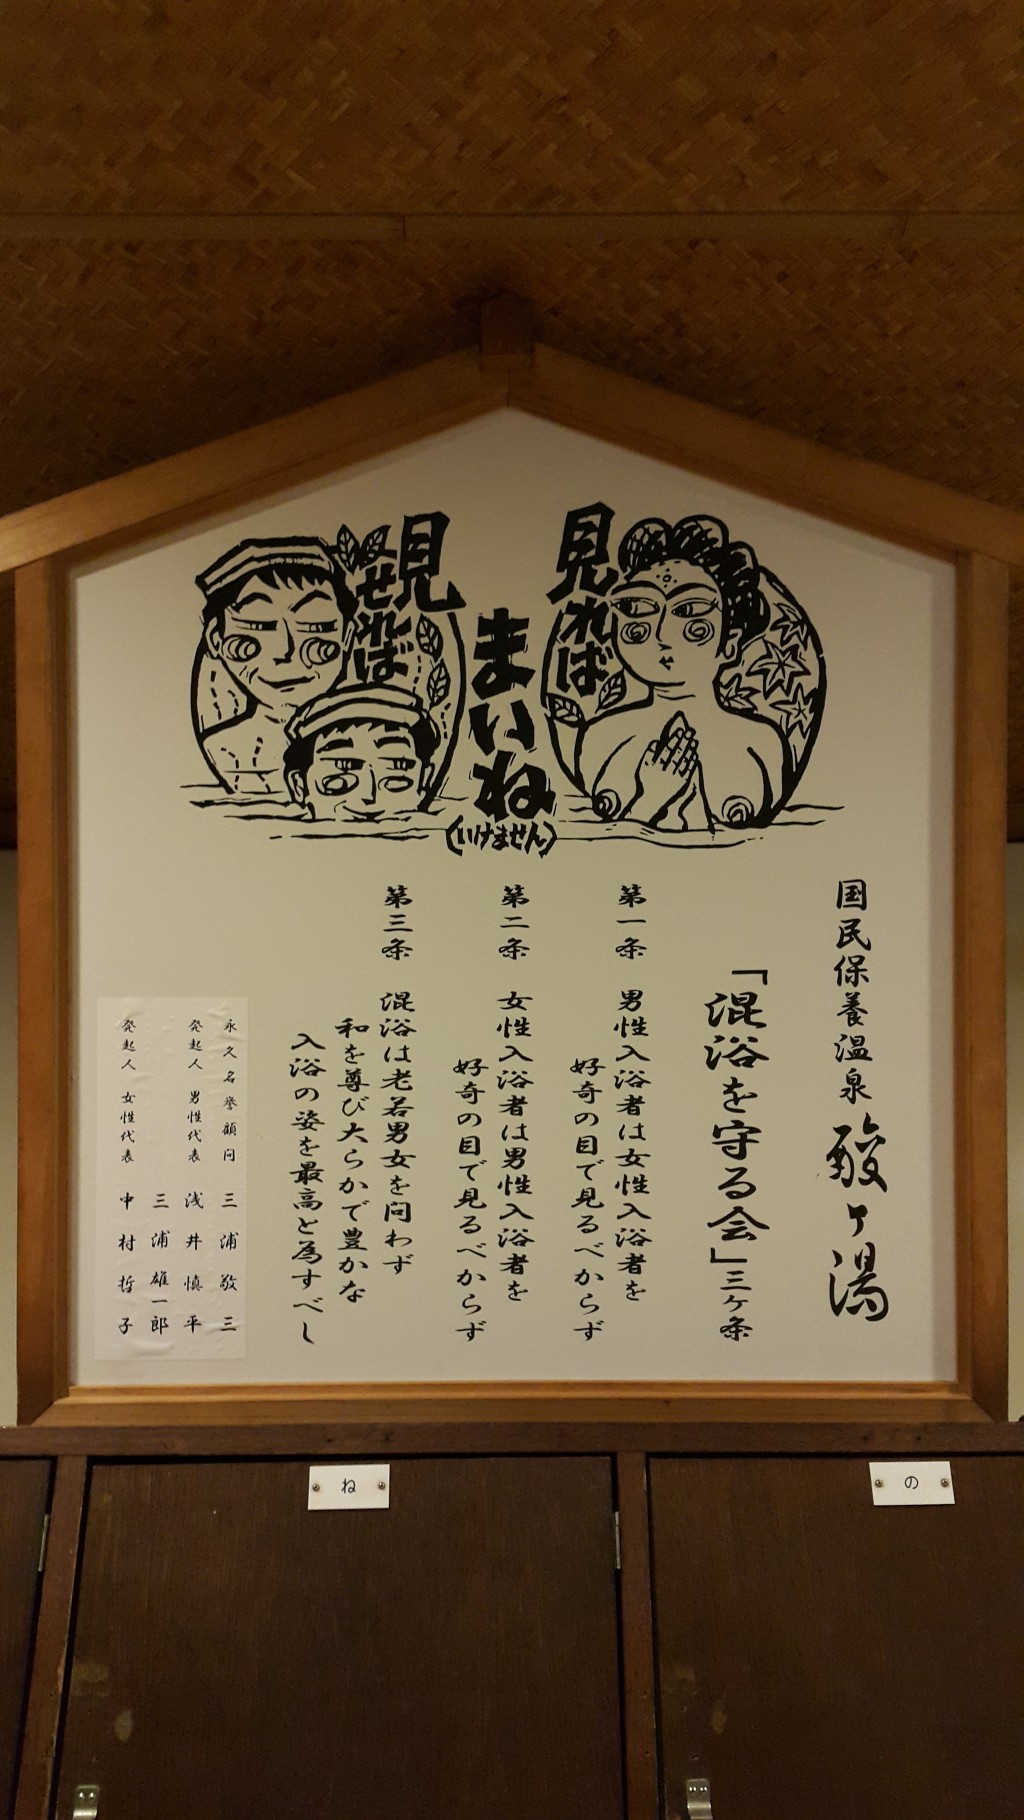 見れば
まいね
(いけません)
見せれば
国民保養温泉 酸ヶ湯
「混浴を守る会」三ヶ条
第一条 男性入浴者は女性入浴者を
好奇の目で見るべからず
第二条 女性入浴者は男性入浴者を
好奇の目で見るべからず
第三条 混浴は老若男女を問わず
和を尊び大らかで豊かな
入浴の姿を最高と為すべし
永久名誉顧問 三浦敬三
発起人 男性代表 浅井慎平
三浦雄一郎
発起人 女性代表 中村哲子
ね
の